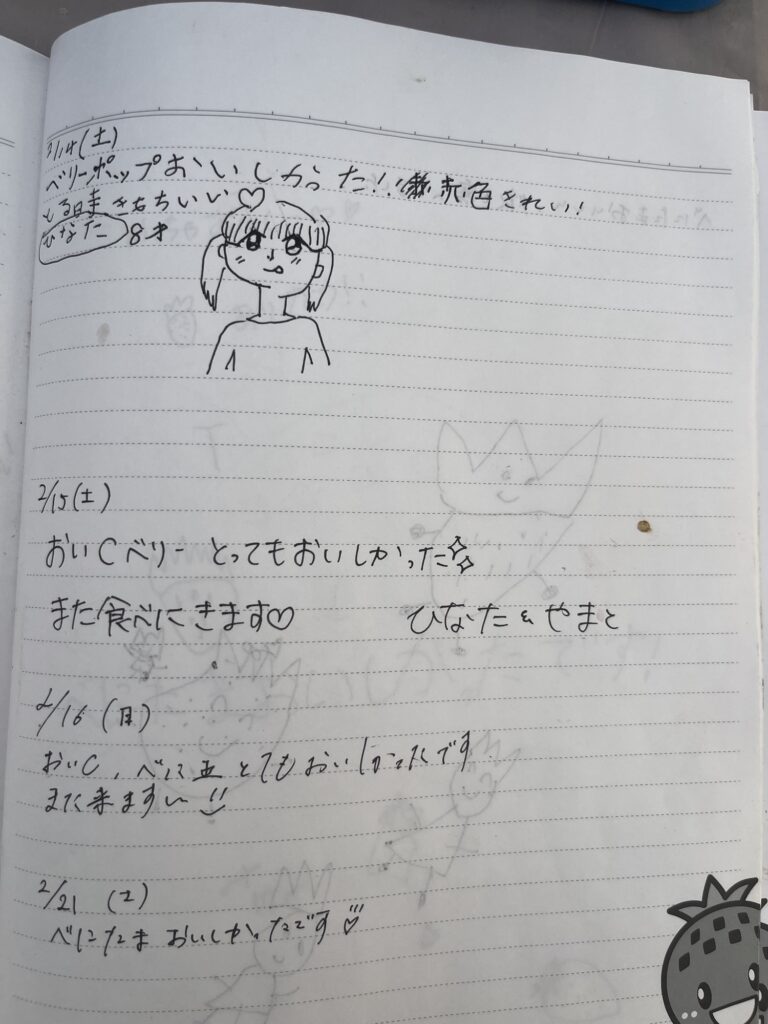 2/14(土)
ベリーポップおいしかった!! 赤色きれい!
とる日まきもちいい♡
ひなた 8才
2/15(土)
おいCベリー とってもおいしかった
また食べにきます♡ ひなた&やまと
2/16 (月)
おいC、べに玉とてもおいしかったです
また来ますい!!
2/21 (土)
べにたま おいしかったです♡